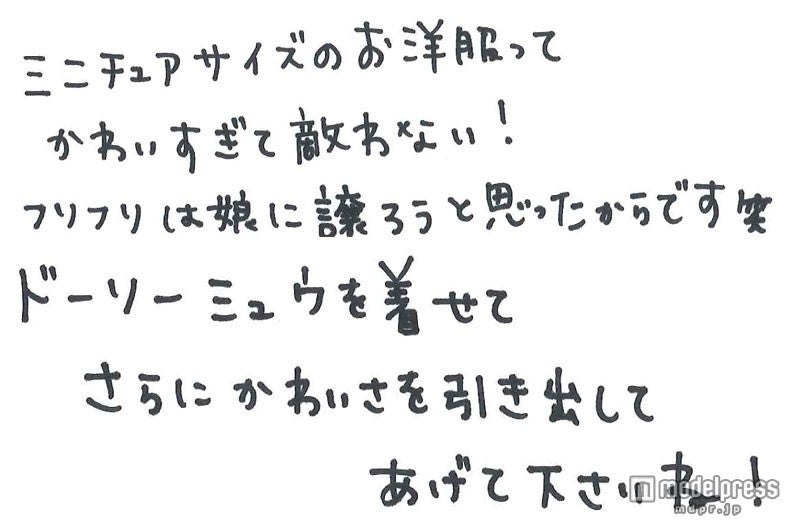 ミニチュアサイズのお洋服って
かわいすぎて敵わない！
フリフリは娘に譲ろうと思ったからです笑
ドーリーミュウを着せて
さらにかわいさを引き出して
あげて下さいねー！
modelpress
mdpr.jp